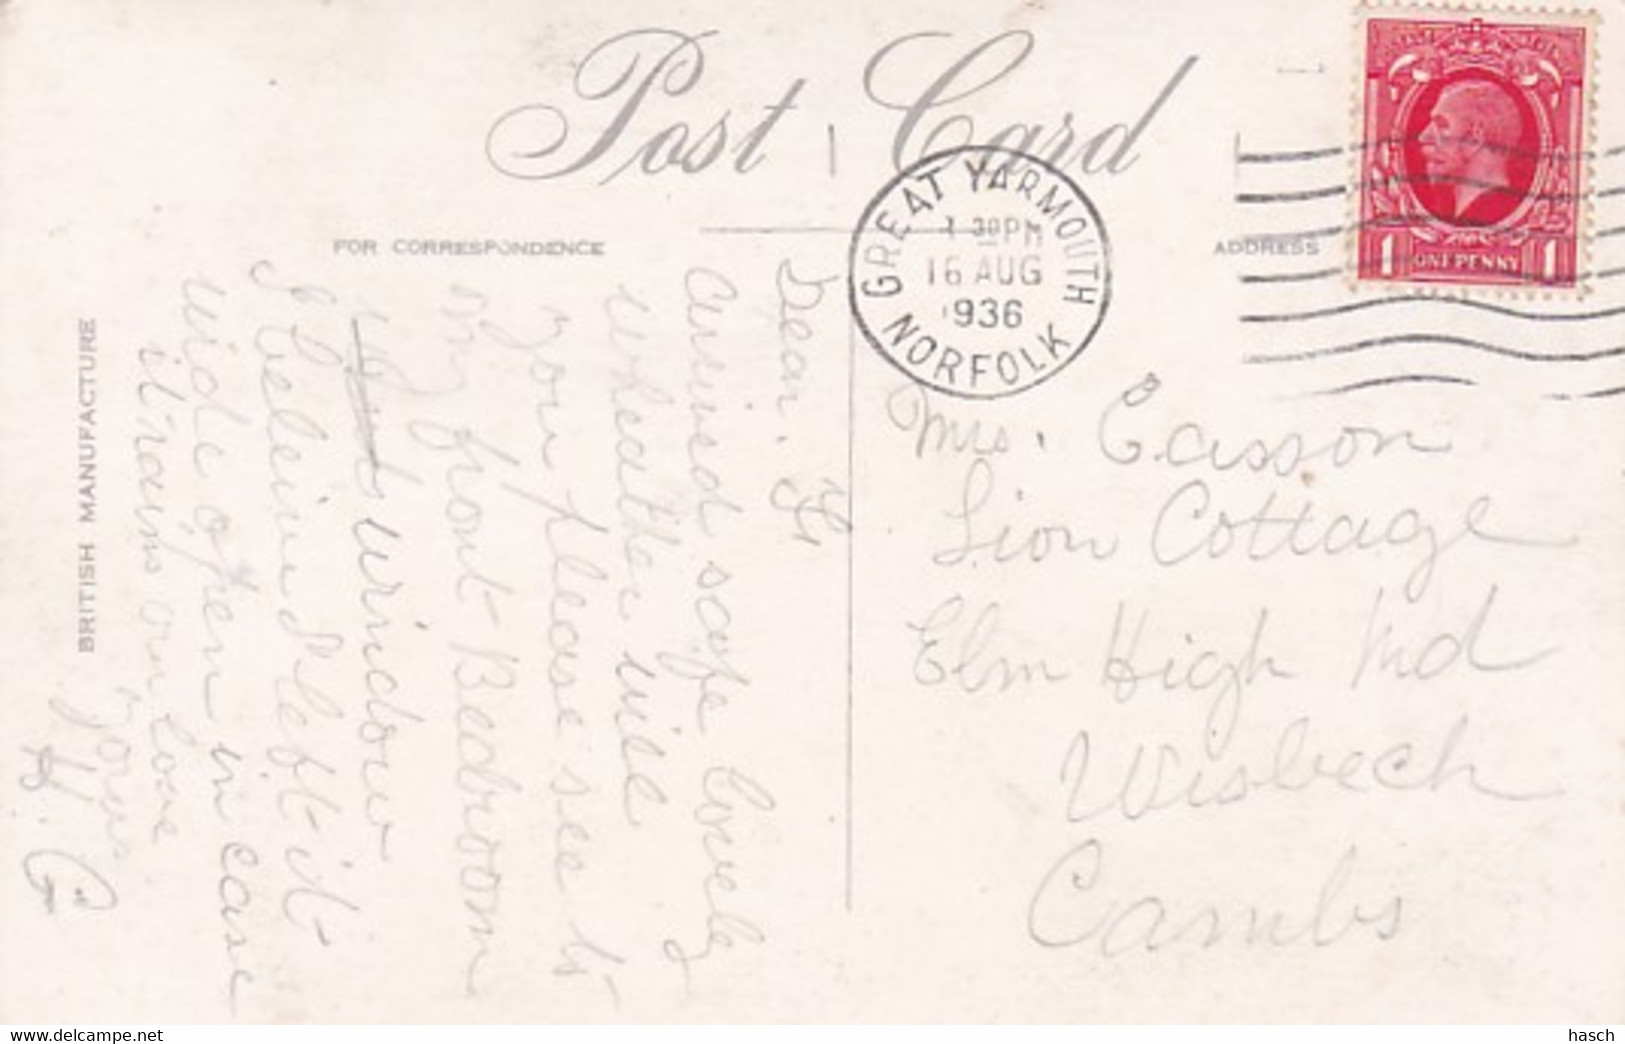 Post Card
FOR CORRESPONDENCE
ADDRESS
BRITISH MANUFACTURE
GREAT YARMOUTH
30PM
16 AUG
1936
NORFOLK
ONE PENNY
1 1
Dear.
arrived safe lovely
wheather will
you please see to
my front Bedroom
window
I beleive I left it
wide open in case
it rains love
Yours
H. G
Mrs. Easson
Lion Cottage
Elm High Rd
Wisbech
Cambs
www.delcampe.net
hasch